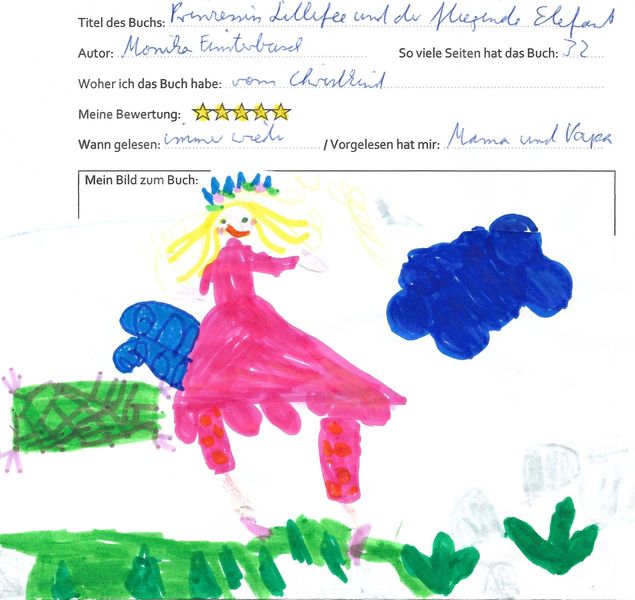 Titel des Buchs: Prinzessin Lillifee und der fliegende Elefant
Autor: Monika Finsterbusch So viele Seiten hat das Buch: 32
Woher ich das Buch habe: vom Christkind
Meine Bewertung:
Wann gelesen: immer wieder / Vorgelesen hat mir: Mama und Papa
Mein Bild zum Buch: